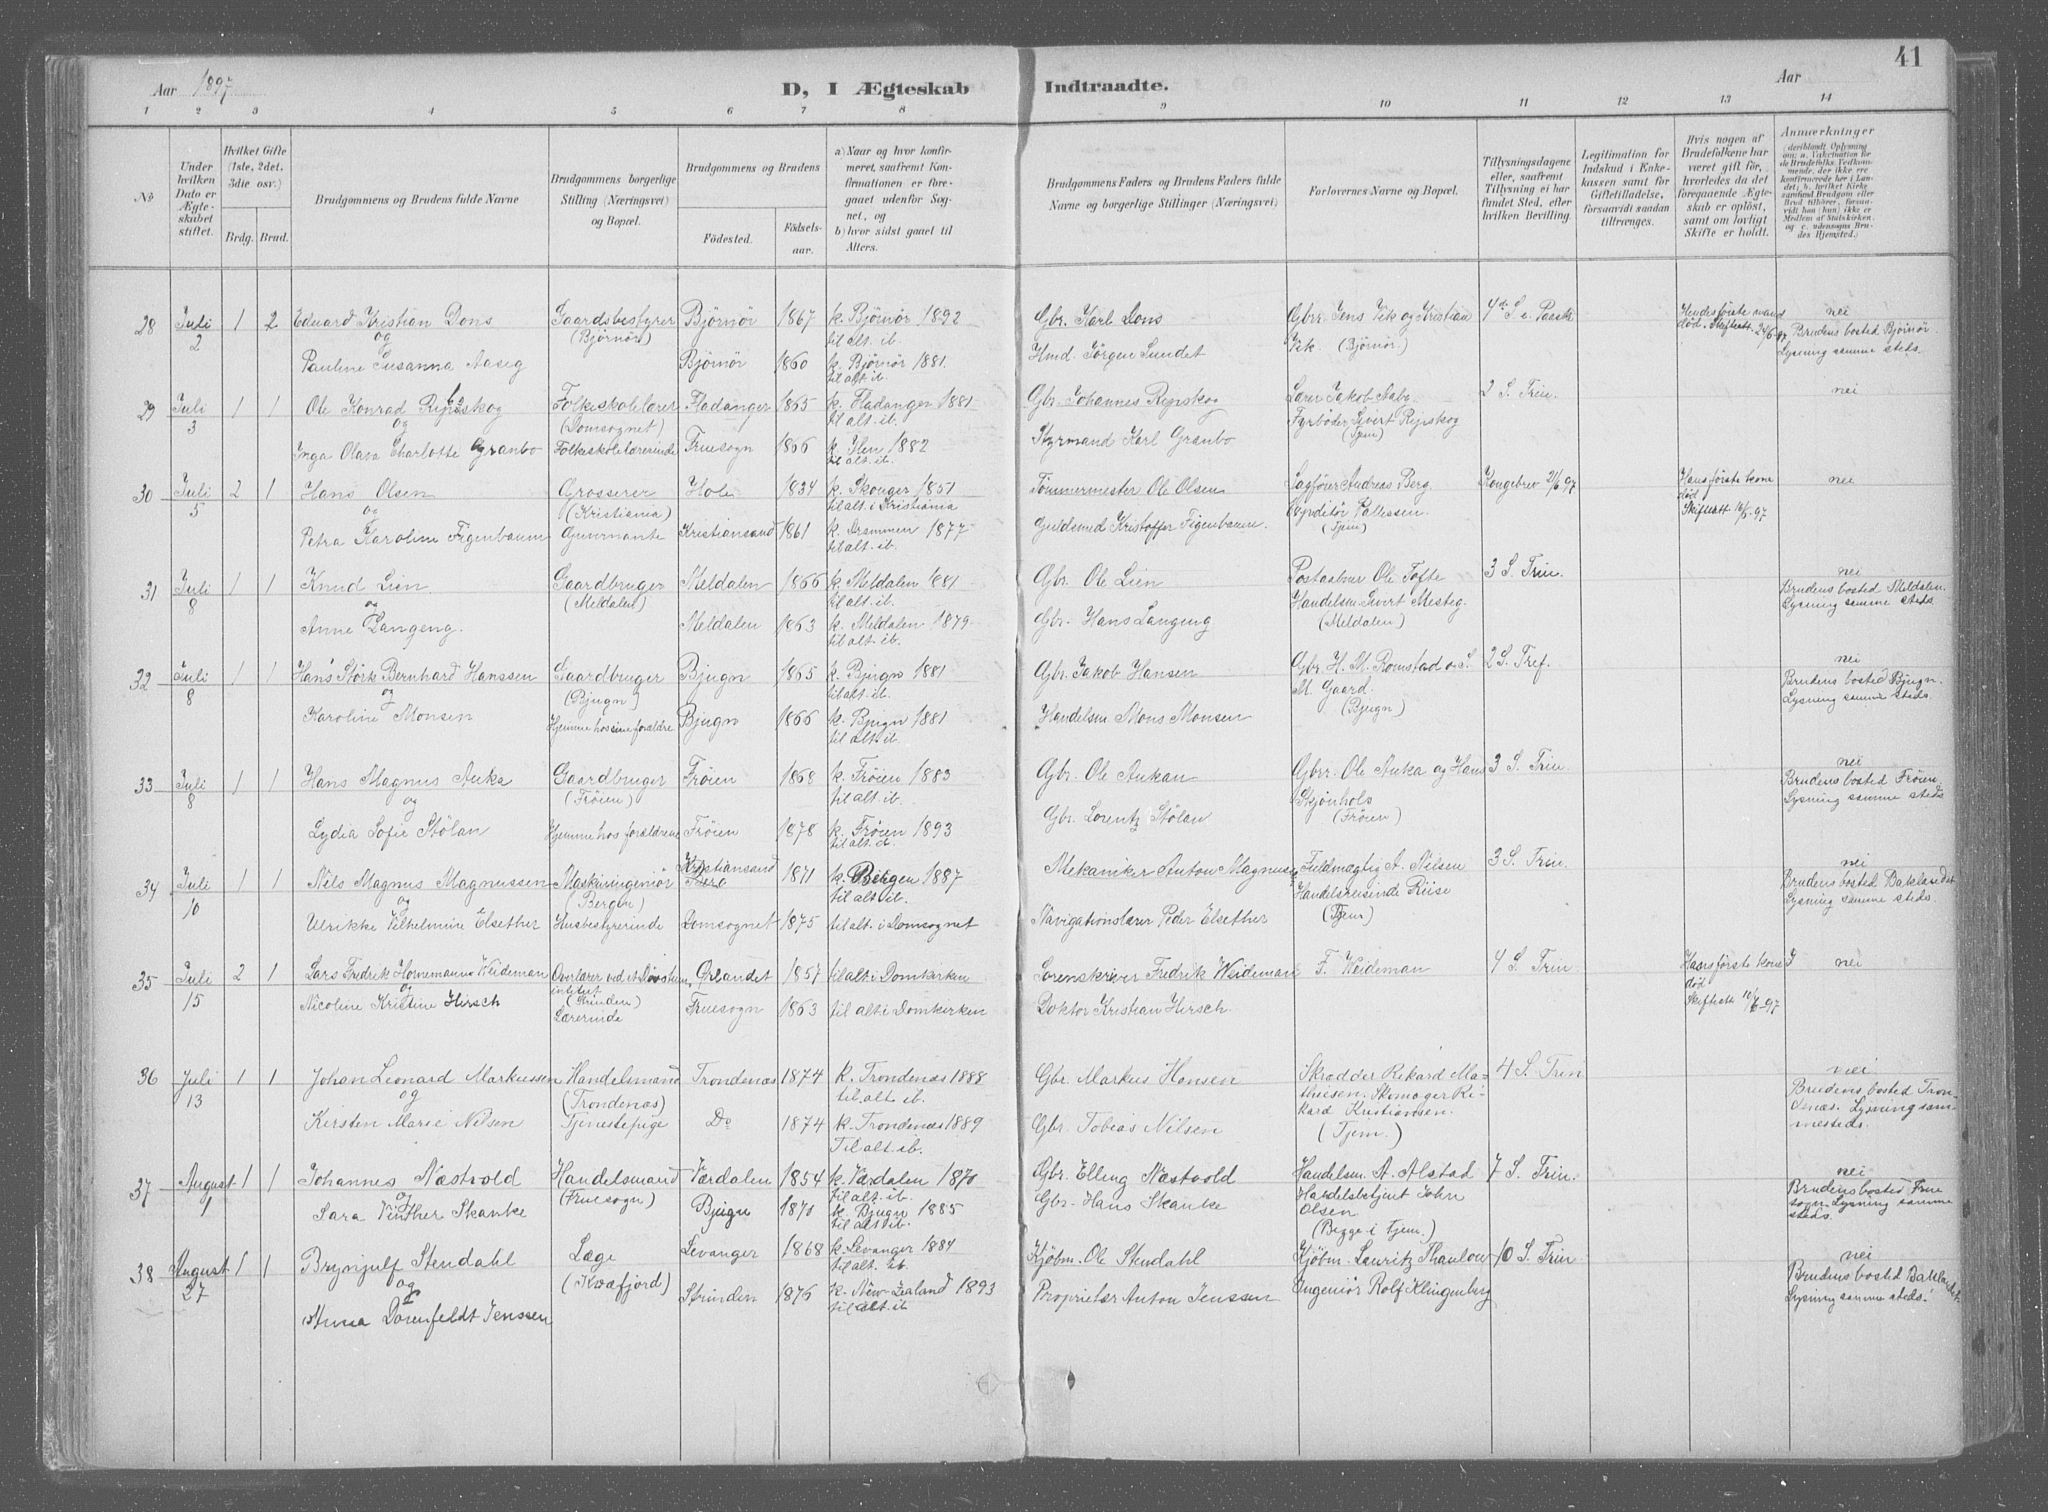 41
Aar 1897 D, I Ægteskab Indtraadte. Aar
1 2 3 4 5 6 7 8 9 10 11 12 13 14
No
Under hvilken Dato er Ægteskabet stiftet.
Hvilket Gifte (1ste, 2det, 3die osv.)
Brdg. Brud.
Brudgommens og Brudens fulde Navne
Brudgommens borgerlige Stilling (Næringsvei) og Bopæl.
Brudgommens og Brudens
Fødested. Fødselsaar.
a) Naar og hvor konfirmeret, saafremt Konfirmationen er foregaaet udenfor Sognet, og
b) hvor sidst gaaet til Alters.
Brudgommens Faders og Brudens Faders fulde Navne og borgerlige Stillinger (Næringsvei)
Forlovernes Navne og Bopæl.
Tillysningsdagene eller, saafremt Tillysning ei har fundet Sted, efter hvilken Bevilling.
Legitimation for Indskud i Enkekassen samt for Giftetilladelse, forsaavidt saadan tiltrænges.
Hvis nogen af Brudefolkene har været gift før, hvorledes da det foregaaende Ægteskab er opløst, samt om lovligt Skifte er holdt.
Anmærkninger
(deriblandt Oplysning om: a. Vakcination for de Brudefolks Vedkommende, der ikke ere konfirmerede her i Landet; b. hvilket Kirkesamfund Brudgom eller Brud tilhører, forsaavidt han (hun) ikke er Medlem af Statskirken, og c. udensogns Brudes Hjemsted.)
28 Juli 2 1 2 Eduard Kristian Dons Gaardsbestyrer (Bjørnør) Bjørnør 1867 k. Bjørnør 1892 til alt. ib. Gbr. Karl Dons Gbrr. Jens Vik og Kristian Vik. (Bjørnør.) 4de S. e. Paaske Hendes første mand død. Skifteatt. 24/6-97 nei
og
Pauline Susanna Aaseg Bjørnør 1860 k. Bjørnør 1881. til alt ib. Hmd. Jörgen Sundet Brudens bosted Bjørnør. Lysning samme steds.
29 Juli 3 1 1 Ole Konrad Repskog Folkeskolelærer (Domsognet) Fladanger 1865 k. Fladanger 1881 til alt. ib. Gbr. Johannes Repskog Lærer Jakob Aaby 2 S. Trin. nei
og
Inga Olava Charlotte Granbo Folkeskolelærerinde Fruesogn 1866 k. Ilen 1882 til alt. ib. Styrmand Karl Granbo Fyrbøder Sivert Repskog (Tjem)
30 Juli 5 2 1 Hans Olsen Grosserer (Kristiania) Hole 1834 k. Skouger 1851 til alt. i Kristiania Tömmermester Ole Olsen Sagfører Andreas Berg Kongebrev 21/6 97 Hans første kone død Skifteatt 16/6-97 nei
og
Petra Karoline Figenbaum Guvernante Kristiansand 1861 k. Drammen 1877 til alt. ib. Guldsmed Kristoffer Figenbaum. Konditor Pallessen (Tjem)
31 Juli 8 1 1 Knud Lien Gaardbruger (Meldalen) Meldalen 1866 k. Meldalen 1881 til alt. ib. Gbr. Ole Lien Postaabner Ole Tofte 3 S. Trin. nei
og
Anne Langeng. Meldalen 1863 k. Meldalen 1879 til alt. ib. Gbr. Hans Langeng Handelsm. Sivirt Mesteg. (Meldalen) Brudens bosted Meldalen. Lysning samme steds.
32 Juli 8 1 1 Hans Störk Bernhard Hanssen Gaardbruger (Bjugn) Bjugn 1865 k. Bjugn 1881 til alt. ib. Gbr. Jakob Hansen Gbr H. M. Romstad o. S. M. Gaard. (Bjugn) 2 S. Tref. nei
og
Karoline Monsen Hjemme hos sine forældre Bjugn 1866 k. Bjugn 1881 til alt. ib. Handelsm Mons Monsen Brudens bosted Bjugn. Lysning samme steds.
33 Juli 8 1 1 Hans Magnus Auka Gaardbruger (Frøien) Frøien 1868 k. Frøien 1883 til alt. ib. Gbr. Ole Aukan Gbrr. Ole Auka og Hans Skjönhols (Frøien) 3 S. Trin. nei
og
Lydia Sofie Stölan Hjemme hos forældrene Frøien 1878 k. Frøien 1893 til alt. d. Gbr. Lorentz Stölan Brudens bosted Frøien. Lysning samme steds
34 Juli 10 1 1 Nils Magnus Magnussen Maskiningeniør (Bergen) Kristiansand 1871 k. Bergen 1887 til alt ib. Mekaniker Anton Magnusen Fuldmægtig A. Nilsen 3 S. Trin. nei
og
Ulrikke Vilhelmine Elsether Husbestyrerinde Domsognet 1875 til alt. i Domsognet Navigationslærer Peder Elsether Handelsreisende Riise (Tjem) Brudens bosted Baklandet Lysning samme steds.
35 Juli 15 2 1 Lars Fredrik Hornemann Weideman Overlærer ved et Døvstum institut (Strinden) Ørlandet 1857 til alt i Domkirken Sorenskriver Fredrik Weideman F. Weideman 4 S. Trin Hans første kone død Skifteatt 10/6-97 nei
og
Nicoline Kristine Hirsch Lærerinde Fruesogn 1863 til alt i Domkirken Doktor Kristian Hirsch.
36 Juli 13 1 1 Johan Leonard Markussen Handelsmand (Trondenæs) Trondenæs 1874 k. Trondenæs 1888 til alt. ib. Gbr. Markus Hansen Skrædder Rikard Mathiesen. Skomager Rikard Kristiansen. (Tjem.) 4 S. Trin nei
og
Kirsten Marie Nilsen Tjenestepige Do 1874 k. Trondenæs 1889 Til alt. ib. Gbr. Tobias Nilsen Brudens bosted Trondenæs. Lysning sammesteds.
37 August 1 1 1 Johannes Næstvold Handelsmand (Fruesogn) Værdalen 1854 k. Værdalen 1870 til alt. ib. Gbr. Elling Næstvold Handelsm. A. Alstad 7 S. Trin. nei
og
Sara Vinther Skanke Bjugn 1870 k. Bjugn 1885 til alt ib. Gbr. Hans Skanke Handelsbetjent John Olsen (Begge i Tjem.) Brudens bosted Fruesogn. Lysning samme steds.
38 August 27 1 1 Brynjulf Stendahl Læge (Kvæfjord) Levanger 1868 k. Levanger 1884 til alt. ib. Kjøbm. Ole Stendahl Kjøbm. Lauritz Thaulow 10 S. Trin nei
og
Anna Dorenfeldt Jenssen Strinden 1876 k. New-Zealand 1893 til alt. ib Proprietær Anton Jenssen Ingeniør Rolf Klingenberg Brudens bosted Baklandet. Lysning samme steds.